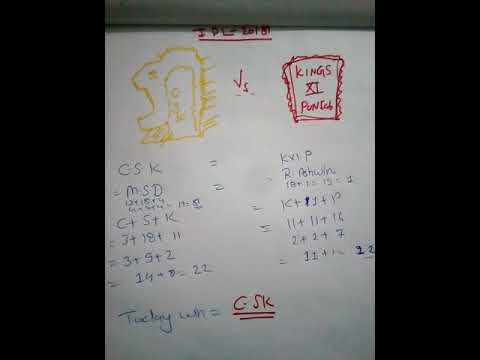 IPL-2018
CSK
Vs
KINGS
XI
PUNJab
CSK =
= MSD =
4+4+4=
C+S+K
= 3+18+11
= 3+9+2
= 14+8=22
KXIP
R. Ashwin
18+1=19=1
= K+11+P
= 11+11+16
2+2+7
= 11+1=12
Today win = CSK